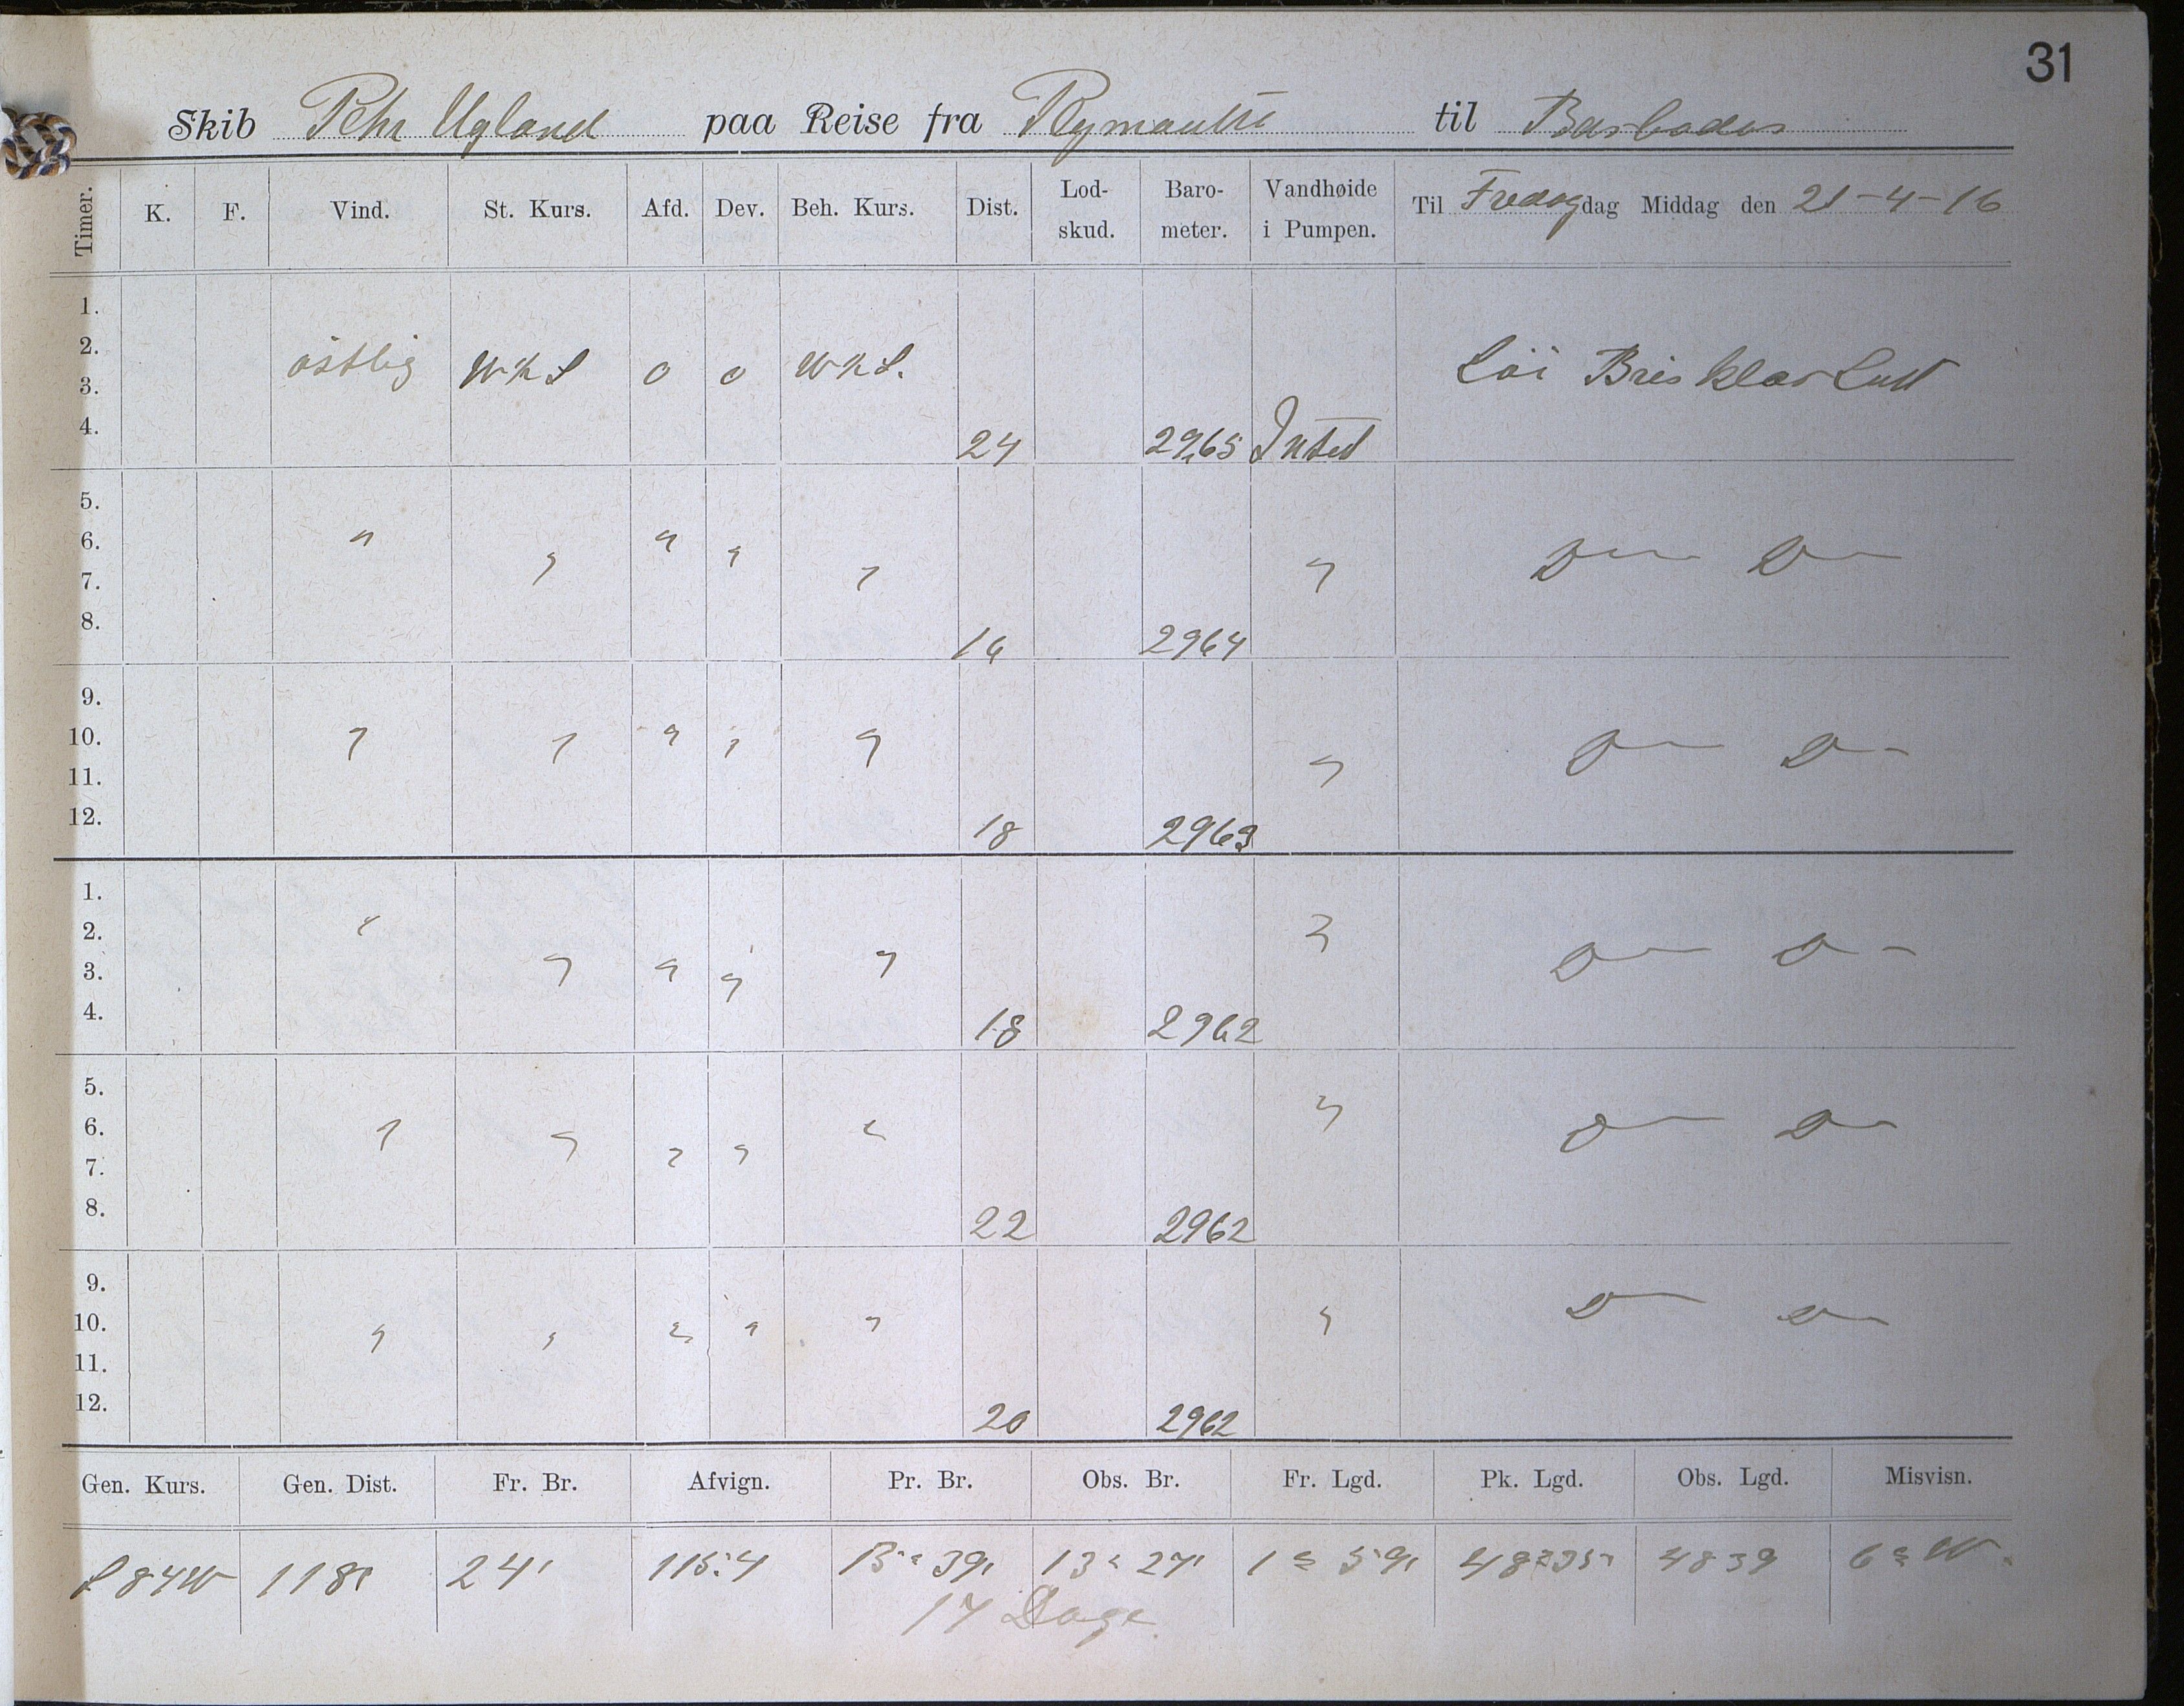 31
Skib Pehr Ugland paa Reise fra Plymouth til Barbados
Timer. K. F. Vind. St. Kurs. Afd. Dev. Beh. Kurs. Dist. Lod-skud. Baro-meter. Vandhøide i Pumpen. Til Fredag dag Middag den 21-4-16
1.
2.
3. östlig o o Bris klar Luft
4. 24 29,65 Intet
5.
6. " " " " " " D— D—
7.
8. 16 2964
9.
10. " " " " " " D— D—
11.
12. 18 2963
1.
2.
3. " " " " " " D— D—
4. 18 2962
5.
6. " " " " " " D— D—
7.
8. 22 2962
9.
10. " " " " " " D— D—
11.
12. 20 2962
Gen. Kurs. Gen. Dist. Fr. Br. Afvign. Pr. Br. Obs. Br. Fr. Lgd. Pk. Lgd. Obs. Lgd. Misvisn.
S 84 W 118' 24' 115.4 13° 39' 13° 27' 1° 59' 48° 35' 48 39 6° W.
17 Dage